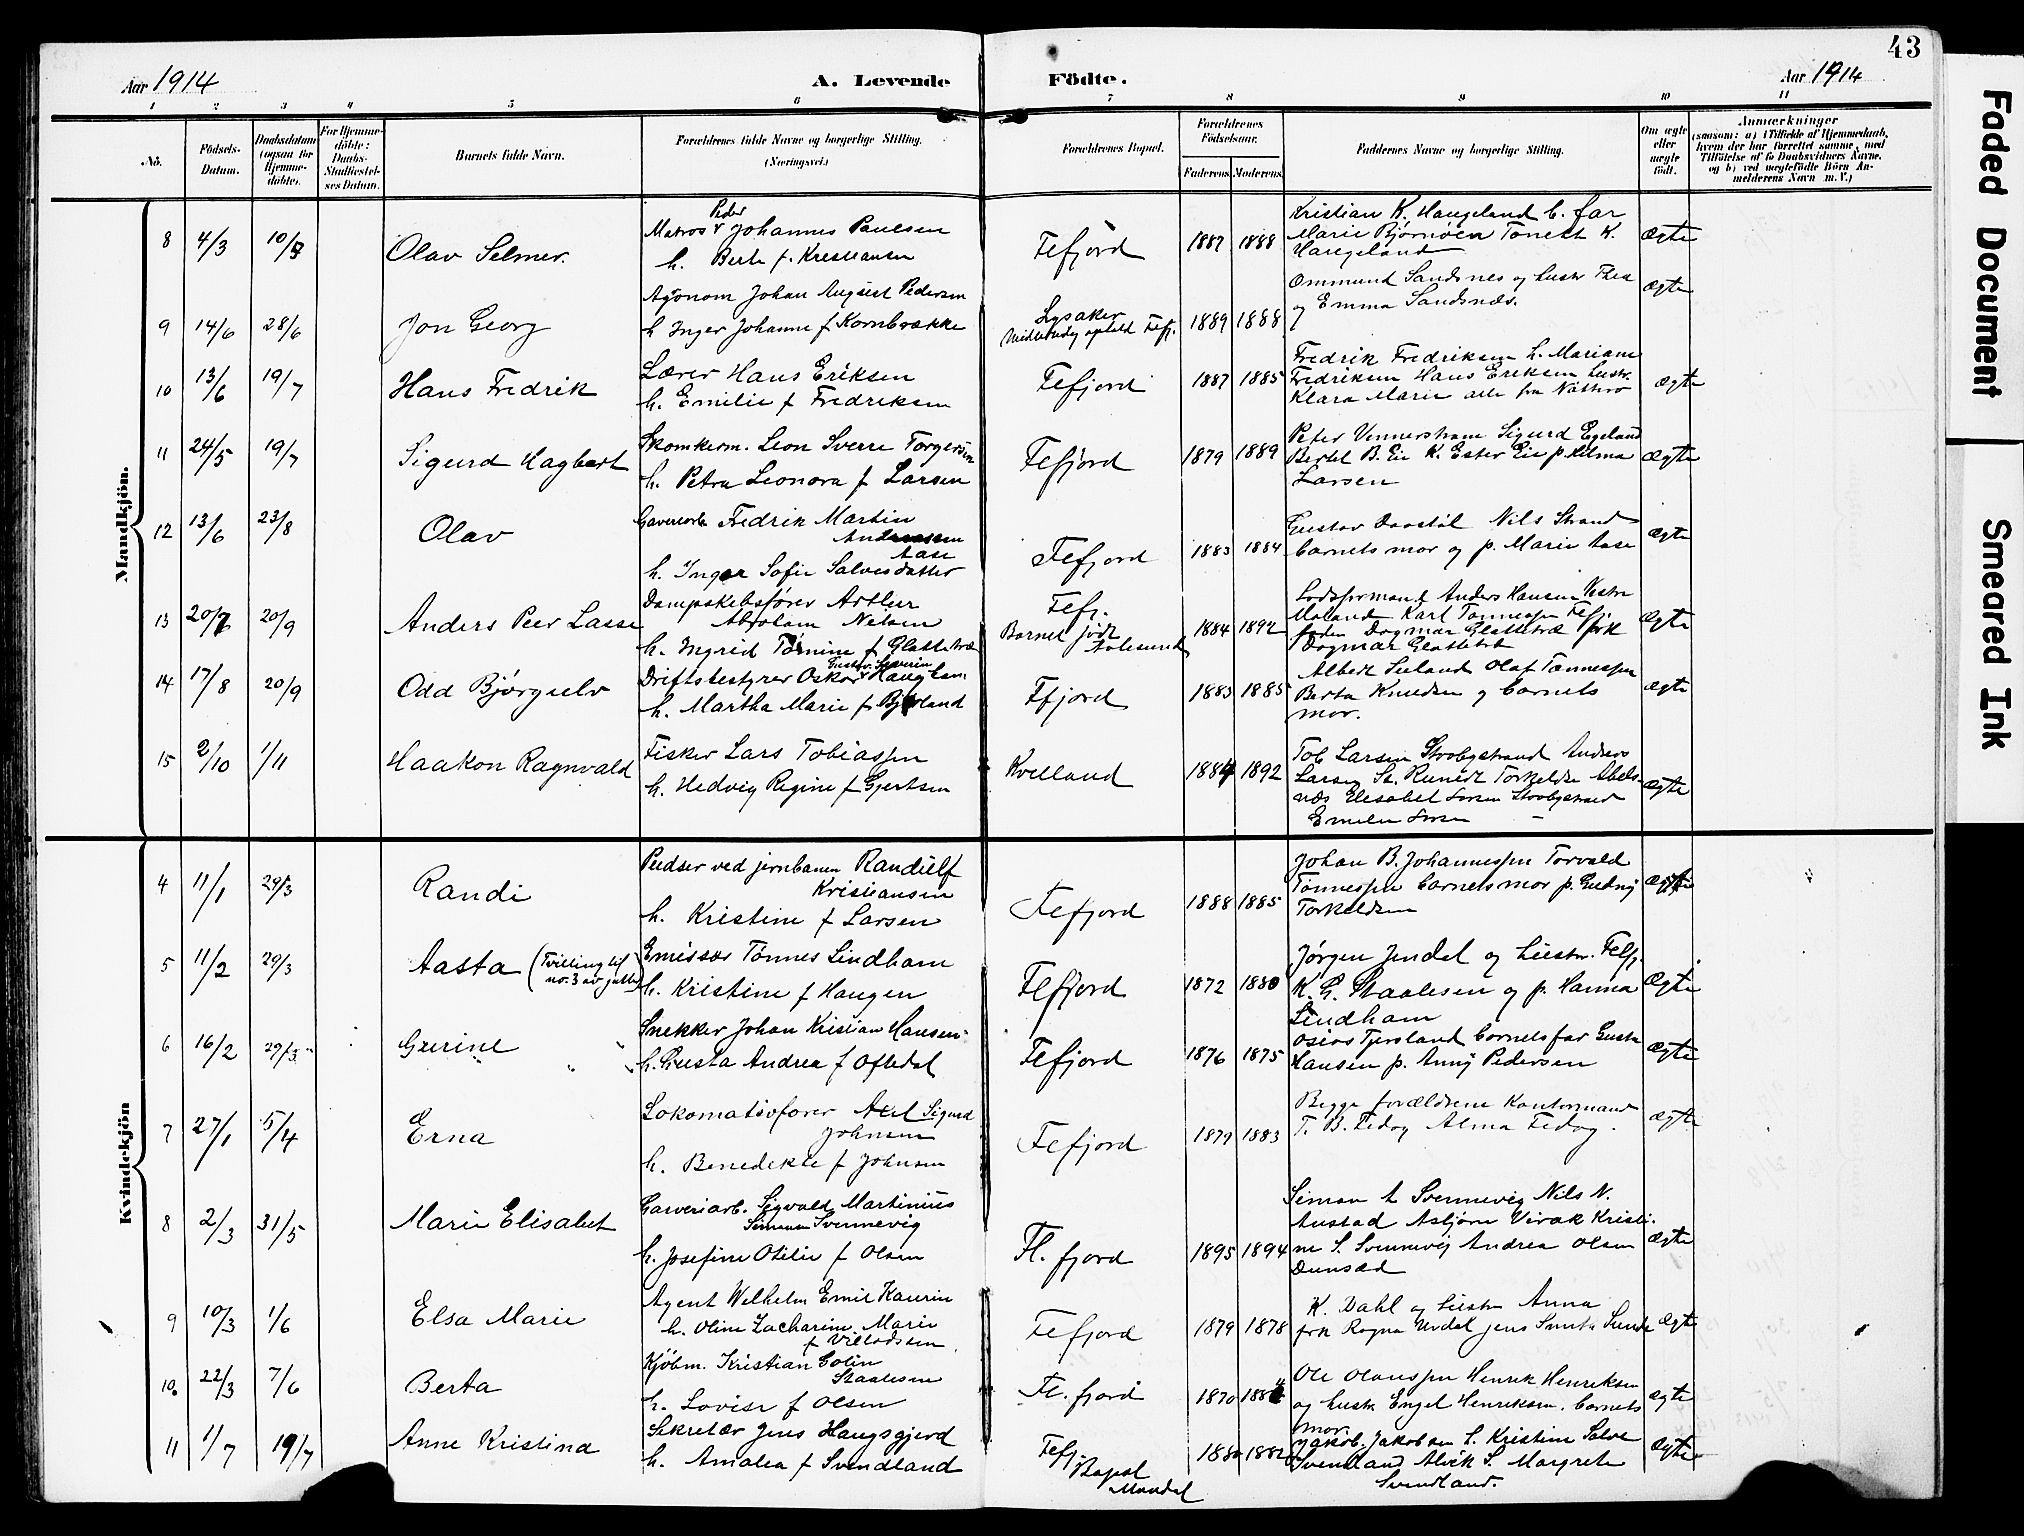 43
Aar 1914
A. Levende
Födte.
Aar 1914
1 2 3 4 5 6 7 8 9 10 11
No.
Födsels-Datum.
Daabsdatum (ogsaa for Hjemme-döbte).
For Hjemme-döbte: Daabs-Stadfæstel-ses Datum.
Barnets fulde Navn.
Forældrenes fulde Navne og borgerlige Stilling. (Næringsvei.)
Forældrenes Bopæl.
Forældrenes Födselsaar.
Faderens. Moderens.
Faddernes Navne og borgerlige Stilling.
Om ægte eller uægte födt.
Anmærkninger
(saasom: a) i Tilfælde af Hjemmedaab, hvem der har forrettet samme, med Tilföielse af to Daabsvidners Navne, og b) ved uægtefödte Börn An-melderens Navn m. V.)
Mandkjön.
8 4/3 10/5 Olav Selmer.
Matros Peder Johannes Paulsen
h. Berte f. Kristiansen
Fefjord 1887 1888
Kristian K. Haugeland b. far
Marie Bjørnøen Tonette K.
Haugeland
Ægte
9 14/6 28/6 Jon Georg
Agronom Johan August Pedersen
h Inger Johanne f Kornbrække
Lysaker
Midlertidig ophold Fefj. 1889 1888
Ommund Sandsnes og hustr Thea
og Emma Sandsnæs.
Ægte
10 13/6 19/7 Hans Fredrik
Lærer Hans Eriksen
h. Emilie f Fredriksen
Fefjord 1887 1885
Fredrik Fredriksen h. Mariane
Fredriksen Hans Eriksen hustr.
Klara Marie alle fra Nøtterø
Ægte
11 24/5 19/7 Sigurd Hagbart
Skomkerm. Leon Sverre Torgersen
h. Petra Leonora f Larsen
Fefjord 1879 1889
Peter Vennerstrøm Sigurd Egeland
Bertel B. Eie K. Ester Eie p. Alma
Larsen
Ægte
12 13/6 23/8 Olav
Garveriarb Fredrik Martin
Aase
h. Inger Sofie Salvesdatter
Fefjord 1883 1884
Gustav Daastøl Nils Strand
barnets mor og p. Marie Aase
Ægte
13 20/7 20/9 Anders Peer Lasse
Dampskibsfører Arthur
Abraham Nilsen
h. Ingrid Tomine f Glattetræ
Fefj.
Barnet født
Aalesund 1884 1892
Lodsformand Anders Hansen Vestre
Moland Karl Tønnessen Fefj
Dagmar Glattetræ frk
Dagmar Glattetræ
Ægte
14 17/8 20/9 Odd Bjørgulv
Driftsbestyrer Oskar Gustav Severin Haugland.
h. Martha Marie f Bjørland
Ffjord 1883 1885
Albert Seland Olaf Tønnessen
Berta Knudsen og barnets
mor.
Ægte
15 2/10 1/11 Haakon Ragnvald
Fisker Lars Tobiassen
h. Hedvig Regine f Gjertsen
Kvelland 1884 1892
Tob Larsen Stroebystrand Andreas
Larsen St. Torkeldsen Abels-
næs Elisabet Larsen
Emilie Larsen
Ægte
Kvindekjön
4 11/1 29/3 Randi
Pudser ved jernbanen Randulf
Kristiansen
h. Kristine f Larsen
Fefjord 1888 1885
Johan B. Johannessen Torvald
Tønnessen barnets mor p. Gudny
Torkeldsen
Ægte
5 11/2 29/3 Aasta (Tvilling til
no. 3 av gutter)
Emissær Tønnes Lindham
h. Kristine f Haugen
Flefjord 1872 1880
Jørgen Jendal og hustr. Flefj.
K. G. Staalesen og p. Hanna
Lindham
Ægte
6 16/2 29/3 Gurine
Snekker Johan Kristian Hansen
h. Gusta Andrea f Oftedal
Fefjord 1876 1875
Osias Tjersland barnets far Gusta
Hansen p. Anny Pedersen
Ægte
7 27/1 5/4 Erna
Lokomotivfører Axel Sigurd
Johnsen
h. Benedikte f Johnsen
Fefjord 1879 1883
Begge forældrene Kontormand
T. B. Fedog Alma Fedog.
Ægte
8 2/3 31/5 Marie Elisabet
Garveriarb. Sigvald Martinius
Simonsen Svennevig
h. Josefine Otilie f Olsen
Fl. fjord 1895 1894
Simon A Svennevig Nils N.
Austad Asbjørn Virak Kristi-
ne S. Svennevig Andrea Olsen
Dunsæd
Ægte
9 10/3 1/6 Elsa Marie
Agent Wilhelm Emil Kaurin
h. Oline Zacharine Marie
f Villadssen.
Fefjord 1879 1878
K. Dahl og hustru Anna
frk Ragna Urdal jens Smith Sunde
Ægte
10. 22/3 7/6 Berta
Kjöbm. Kristian Colin
Staalesen
h. Lovise f Olsen
Fl. fjord 1870
Ole Olaussen Henrik Henriksen
og hustr Engel Henriksen. barnets
mor
Ægte
11 1/7 19/7 Anne Kristina
Sekretær Jens Haugsgjerd
h. Amalia f Svindland
Fefj.
Bopæl
Mandal 1880 1882
Jakob Jakobsen S. Kristine Salve
Svindland Alvik S. Margrete
Svindland.
Ægte
Faded Document
Smeared Ink